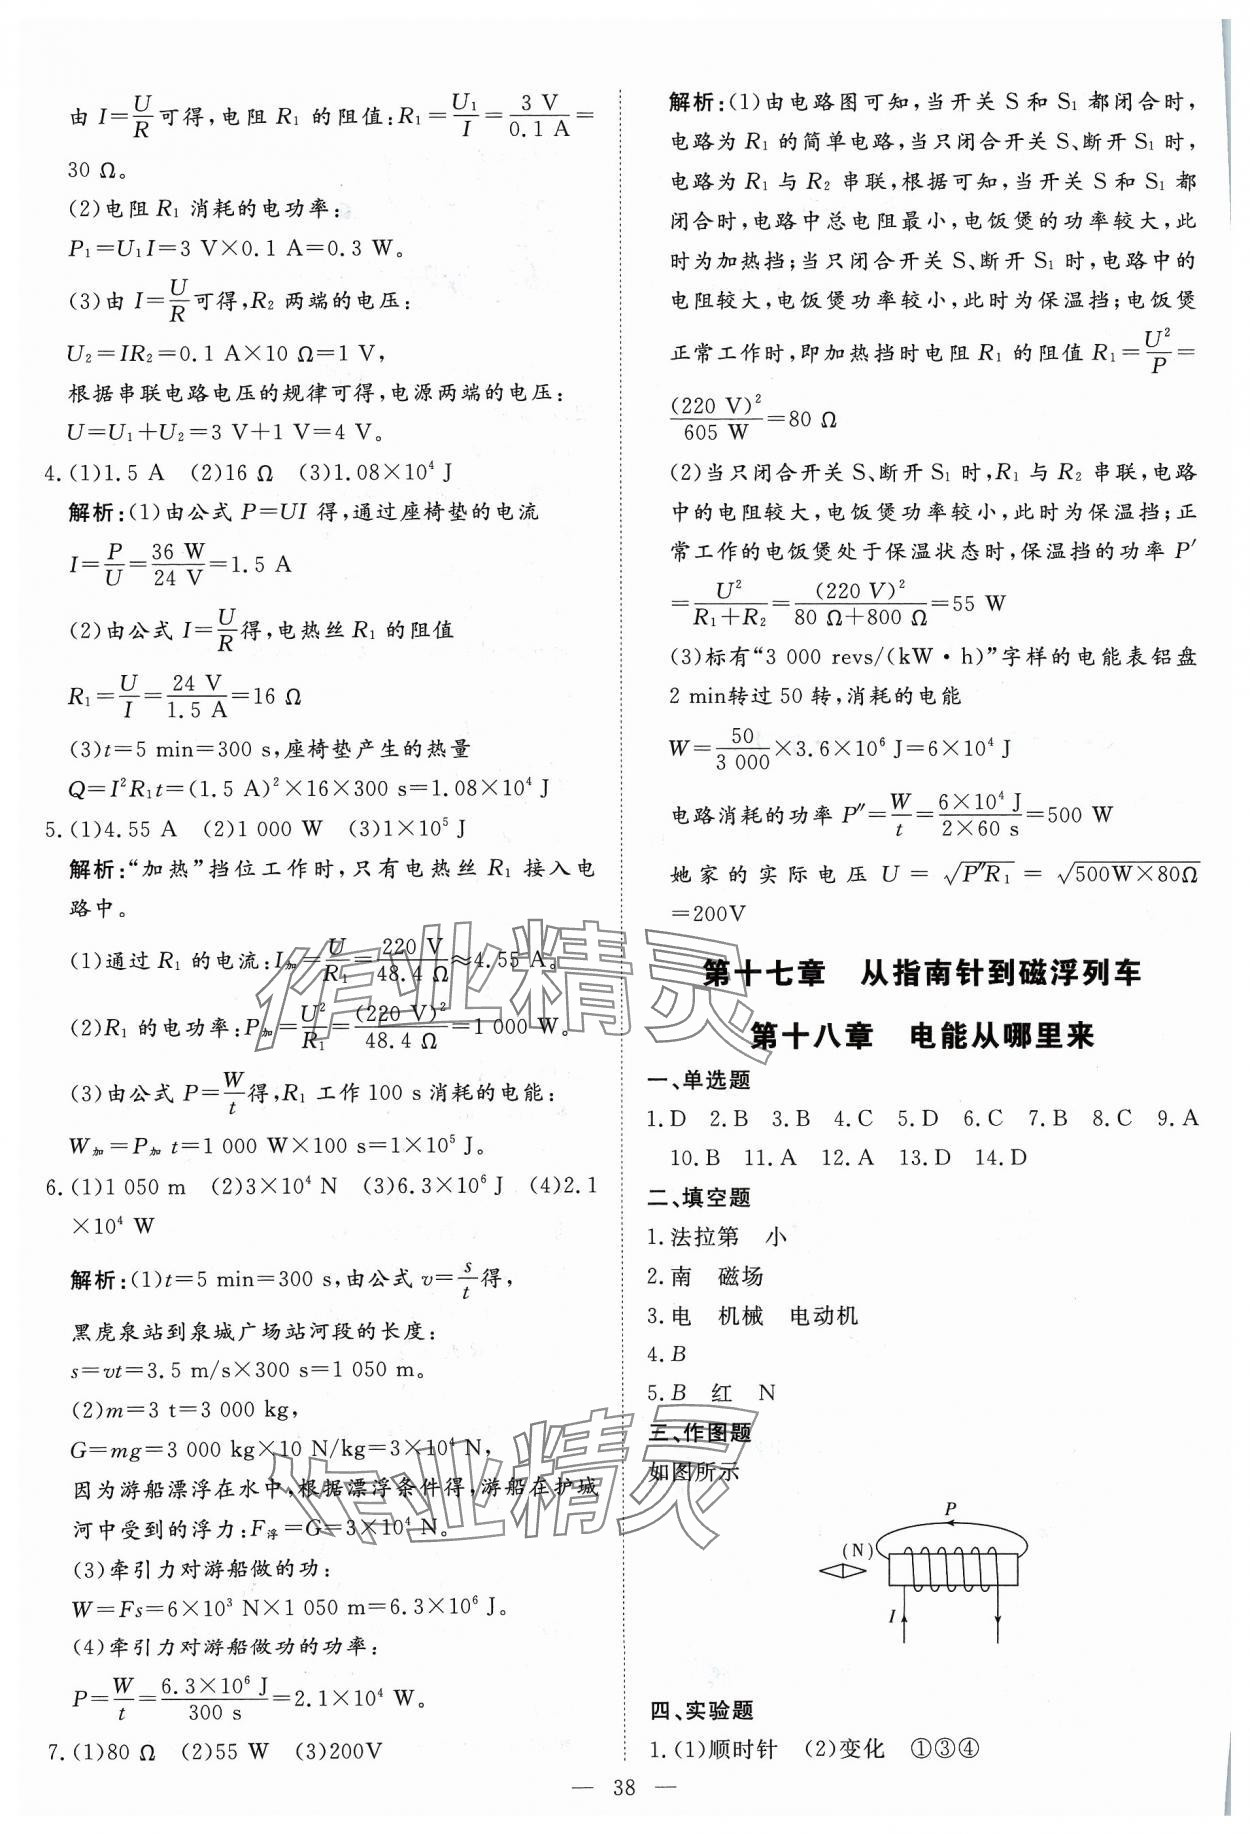 由 I=U/R可得,电阻 R₁ 的阻值:R₁=U₁/I=3 V/0.1 A=
30 Ω。
(2)电阻 R₁ 消耗的电功率:
P₁=U₁I=3 V×0.1 A=0.3 W。
(3)由 I=U/R可得,R₂ 两端的电压:
U₂=IR₂=0.1 A×10 Ω=1 V,
根据串联电路电压的规律可得,电源两端的电压:
U=U₁+U₂=3 V+1 V=4 V。
4.(1)1.5 A (2)16 Ω (3)1.08×10⁴ J
解析:(1)由公式 P=UI 得,通过座椅垫的电流
I=P/U=36 W/24 V=1.5 A
(2)由公式 I=U/R得,电热丝 R₁ 的阻值
R₁=U/I=24 V/1.5 A=16 Ω
(3)t=5 min=300 s,座椅垫产生的热量
Q=I²R₁t=(1.5 A)²×16×300 s=1.08×10⁴ J
5.(1)4.55 A (2)1 000 W (3)1×10⁵ J
解析:“加热”挡位工作时,只有电热丝 R₁ 接入电
路中。
(1)通过 R₁ 的电流:I加=U/R₁=220 V/48.4 Ω≈4.55 A。
(2)R₁ 的电功率:P加=U²/R₁=(220 V)²/48.4 Ω=1 000 W。
(3)由公式 P=W/t得,R₁ 工作 100 s 消耗的电能:
W加=P加 t=1 000 W×100 s=1×10⁵ J。
6.(1)1 050 m (2)3×10⁴ N (3)6.3×10⁶ J (4)2.1
×10⁴ W
解析:(1)t=5 min=300 s,由公式 v=s/t得,
黑虎泉站到泉城广场站河段的长度:
s=vt=3.5 m/s×300 s=1 050 m。
(2)m=3 t=3 000 kg,
G=mg=3 000 kg×10 N/kg=3×10⁴ N,
因为游船漂浮在水中,根据漂浮条件得,游船在护城
河中受到的浮力:F浮=G=3×10⁴ N。
(3)牵引力对游船做的功:
W=Fs=6×10³ N×1 050 m=6.3×10⁶ J。
(4)牵引力对游船做功的功率:
P=W/t=6.3×10⁶ J/300 s=2.1×10⁴ W。
7.(1)80 Ω (2)55 W (3)200V
解析:(1)由电路图可知,当开关 S 和 S₁ 都闭合时,
电路为 R₁ 的简单电路,当只闭合开关 S、断开 S₁ 时,
电路为 R₁ 与 R₂ 串联,根据可知,当开关 S 和 S₁ 都
闭合时,电路中总电阻最小,电饭煲的功率较大,此
时为加热挡;当只闭合开关 S、断开 S₁ 时,电路中的
电阻较大,电饭煲功率较小,此时为保温挡;电饭煲
正常工作时,即加热挡时电阻 R₁ 的阻值 R₁=U²/P=
(220 V)²/605 W=80 Ω
(2)当只闭合开关 S、断开 S₁ 时,R₁ 与 R₂ 串联,电路
中的电阻较大,电饭煲功率较小,此时为保温挡;正
常工作的电饭煲处于保温状态时,保温挡的功率 P′
=U²/(R₁+R₂)=(220 V)²/(80 Ω+800 Ω)=55 W
(3)标有“3 000 revs/(kW·h)”字样的电能表铝盘
2 min转过 50 转,消耗的电能
W=50/3 000×3.6×10⁶ J=6×10⁴ J
电路消耗的功率 P″=W/t=6×10⁴ J/2×60 s=500 W
她家的实际电压 U=√(P″R₁)=√(500W×80Ω)
=200V
第十七章 从指南针到磁浮列车
第十八章 电能从哪里来
一、单选题
1.D 2.B 3.B 4.C 5.D 6.C 7.B 8.C 9.A
10.B 11.A 12.A 13.D 14.D
二、填空题
1.法拉第 小
2.南 磁场
3.电 机械 电动机
4.B
5.B 红 N
三、作图题
如图所示
P
(N)
I
四、实验题
1.(1)顺时针 (2)变化 ①③④
— 38 —
作业精灵
作业精灵